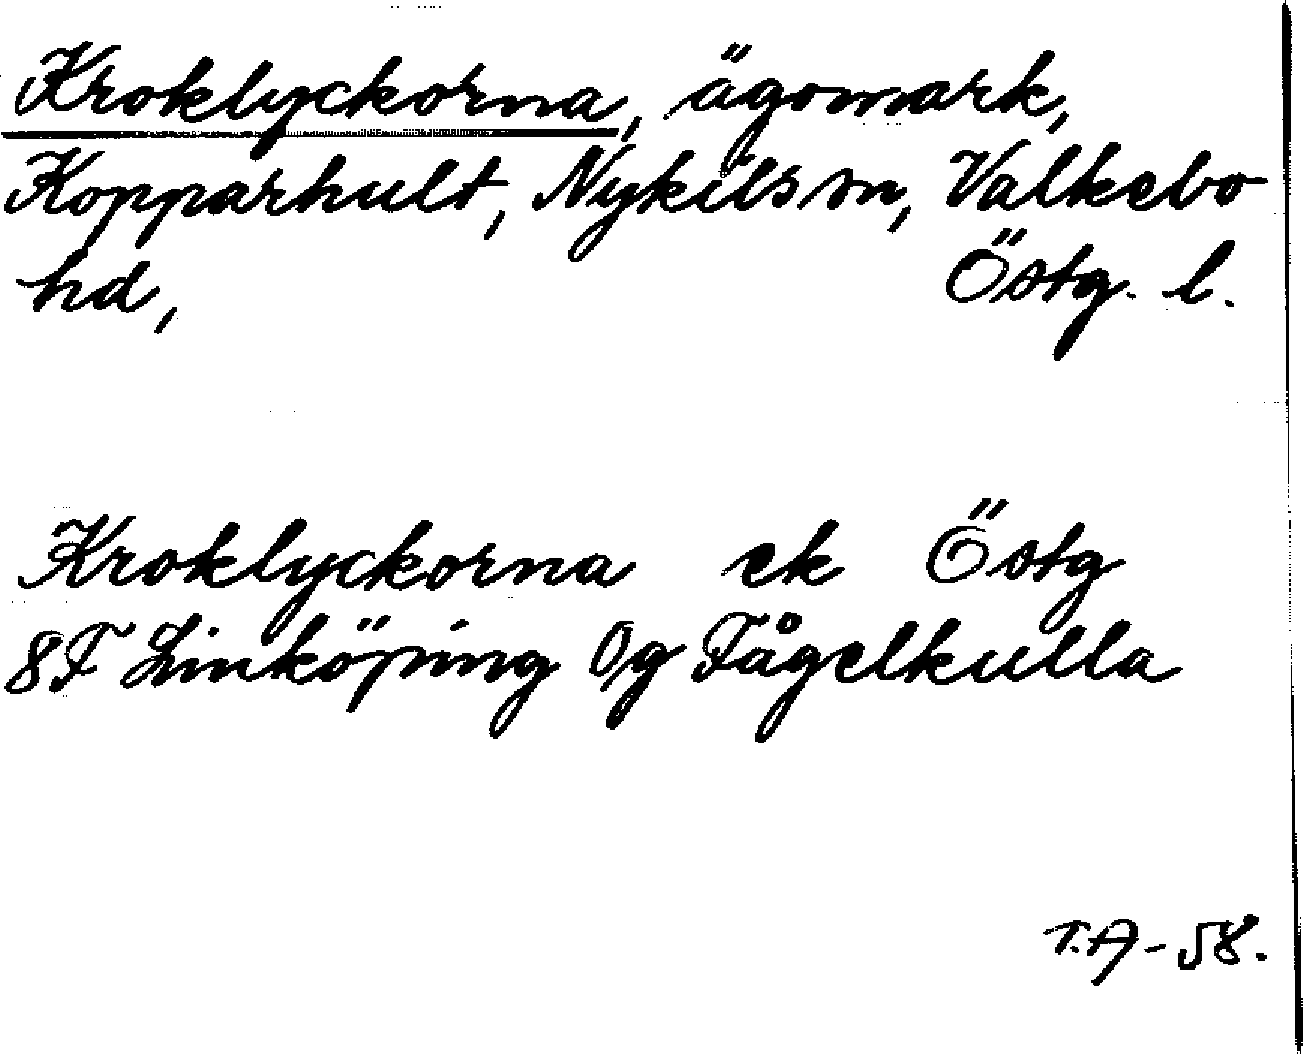 Kroklyckorna, ägomark,
Kopparhult, Nykils sn, Valkebo
hd, Östg. l.
Kroklyckorna ek Östg
8F Linköping Og Fågelkulla
T.A-58.